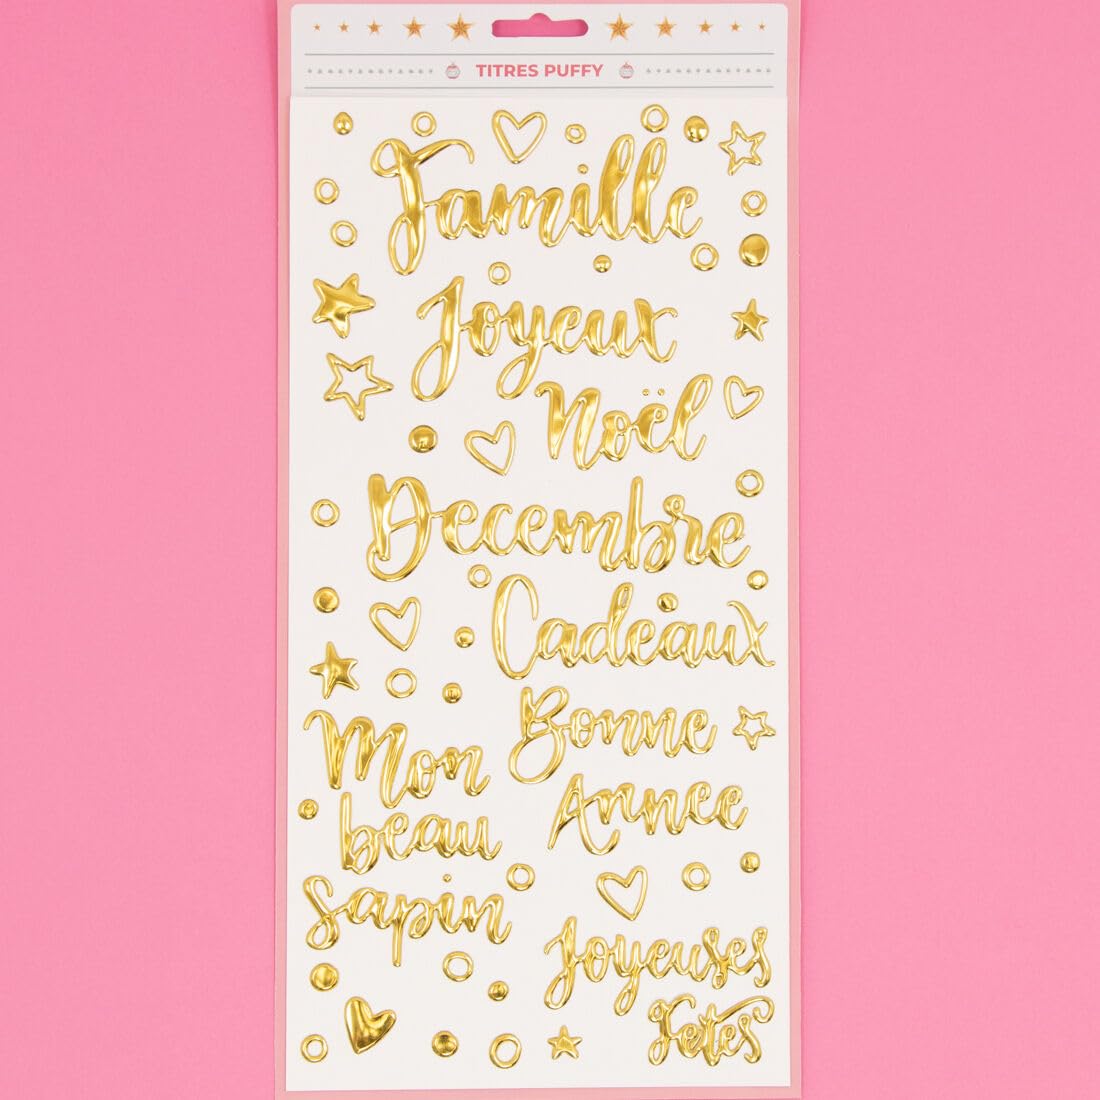 TITRES PUFFY
Famille
Joyeux
Noël
Decembre
Cadeaux
Bonne
Annee
Mon
beau
sapin
Joyeuses
Fetes